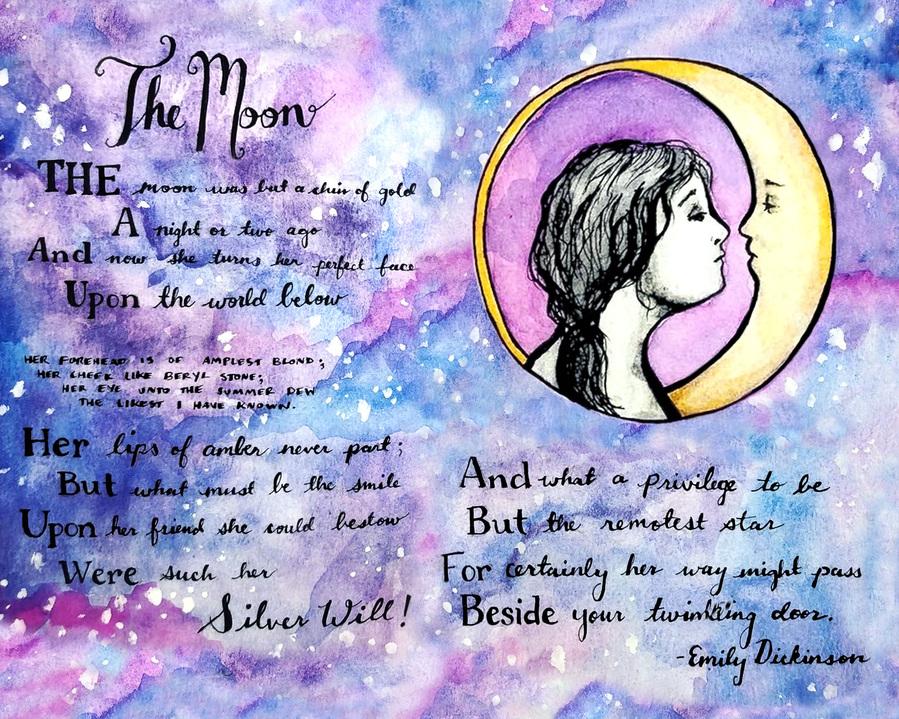 The Moon
THE moon was but a chin of gold
A night or two ago
And now she turns her perfect face
Upon the world below
HER FOREHEAD IS OF AMPLEST BLOND;
HER CHEEK LIKE BERYL STONE;
HER EYE UNTO THE SUMMER DEW
THE LIKEST I HAVE KNOWN.
Her lips of amber never part;
But what must be the smile
Upon her friend she could bestow
Were such her
Silver Will!
And what a privilege to be
But the remotest star
For certainly her way might pass
Beside your twinkling door.
-Emily Dickinson